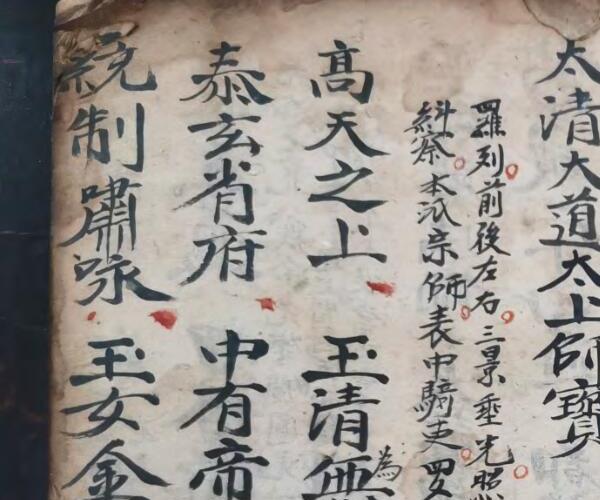 太清大道太上師寶
羅列前後左右三景垂光昭
糾察本派宗師表中騎吏
高天之上 玉清
為
泰玄省府 中有帝
統制嘯咏 玉女金